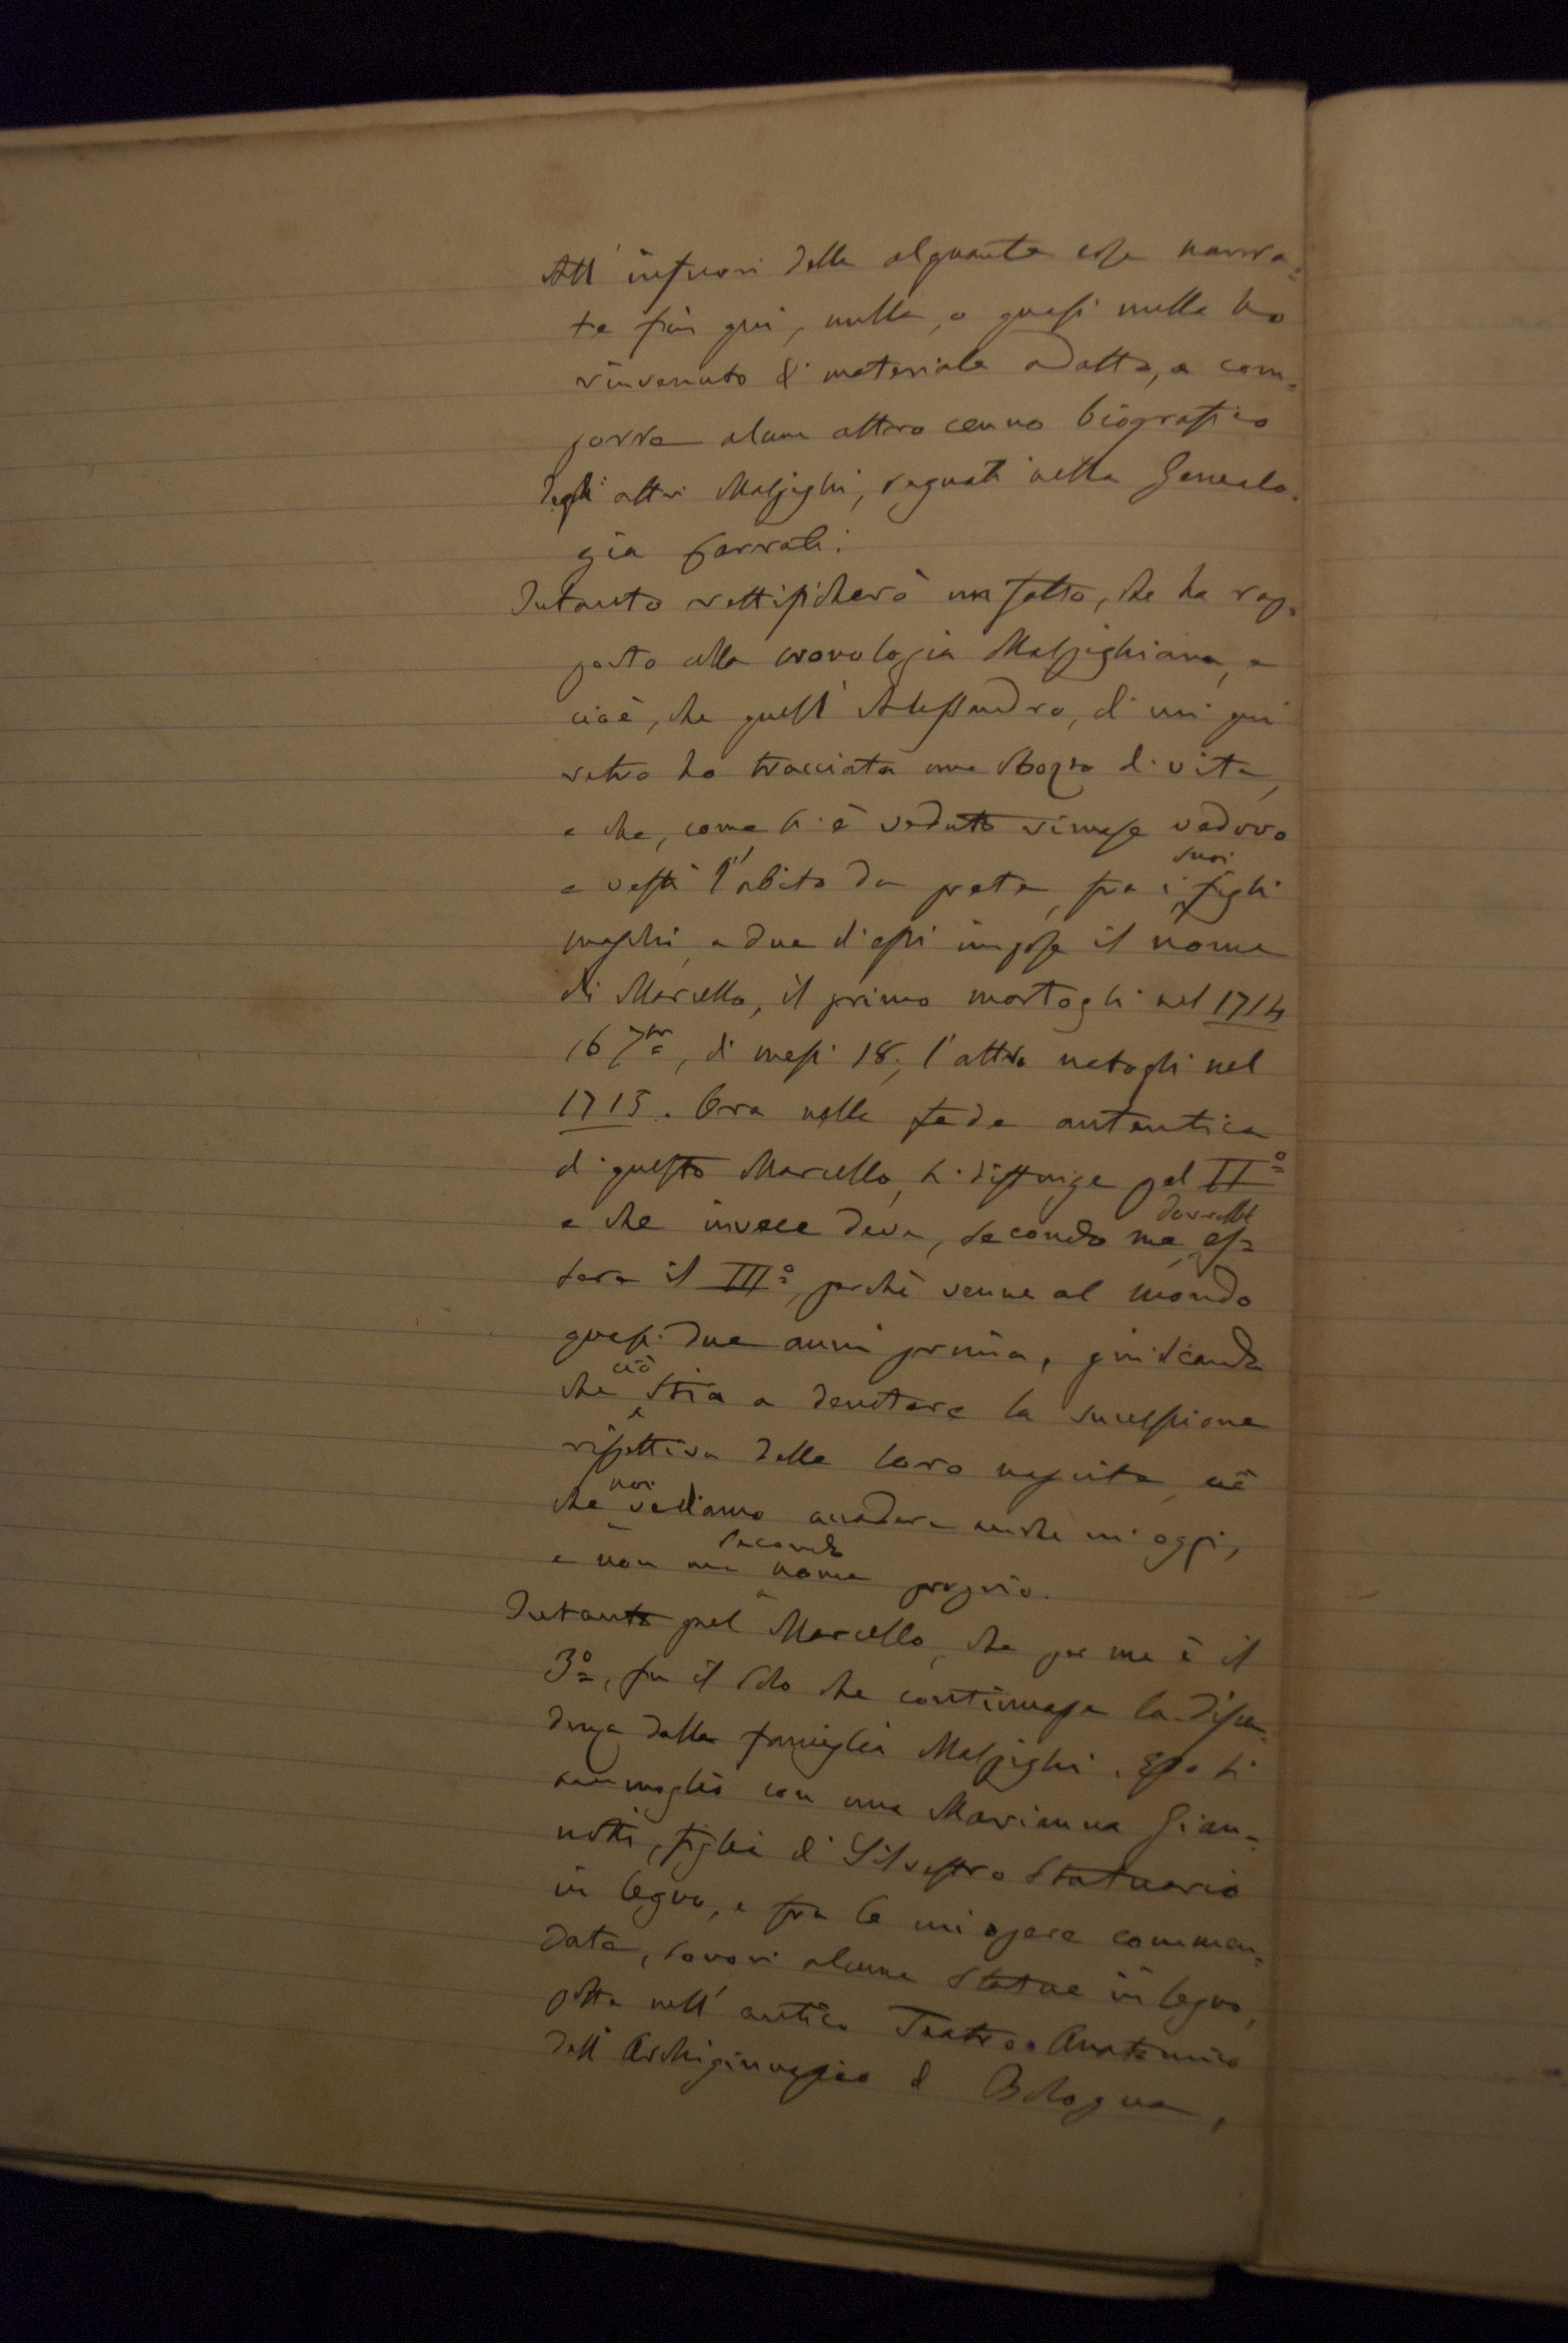 All' infuori delle alquante cose narra=
te fin qui, nulla, o quasi nulla ho
rinvenuto di materiale adatto, a com=
porre alcun altro cenno biografico
degli altri Malpighi, segnati nella Genealo=
gia Carrati.
Intanto rettificherò un fatto, che ha rap=
porto alla cronologia Malpighiana, e
cioè, che quest' Alessandro, di cui qui
retro ho tracciata una sbozzo di vita,
e che, come si è veduto rimase vedovo
e vestì l'abito da prete, fra i suoi figli
maschi, a due di essi impose il nome
di Marcello, il primo mortogli nel 1714
16 7bre, di mesi 18, l'altro natogli nel
1715. Ora nella fede autentica
di questo Marcello, si distingue pel II°
e che invece deve, secondo me dovrebbe es=
sere il III°, perchè venne al mondo
quasi due anni prima, giudicando
che ciò stia a denotare la successione
rispettiva delle loro nascite, ciò
che noi vediamo accadere anche in oggi,
e non un secondo nome proprio.
Intanto quel Marcello, che per me è il
3°, fu il solo che continuasse la discen=
denza della famiglia Malpighi. Esso si
ammogliò con una Marianna Gian=
notti, figlia di Silvestro Statuario
in legno, e fra le cui opere commen=
date, sonovi alcune Statue in legno,
poste nell' antico Teatro Anatomico
dell' Archiginnasio di Bologna,